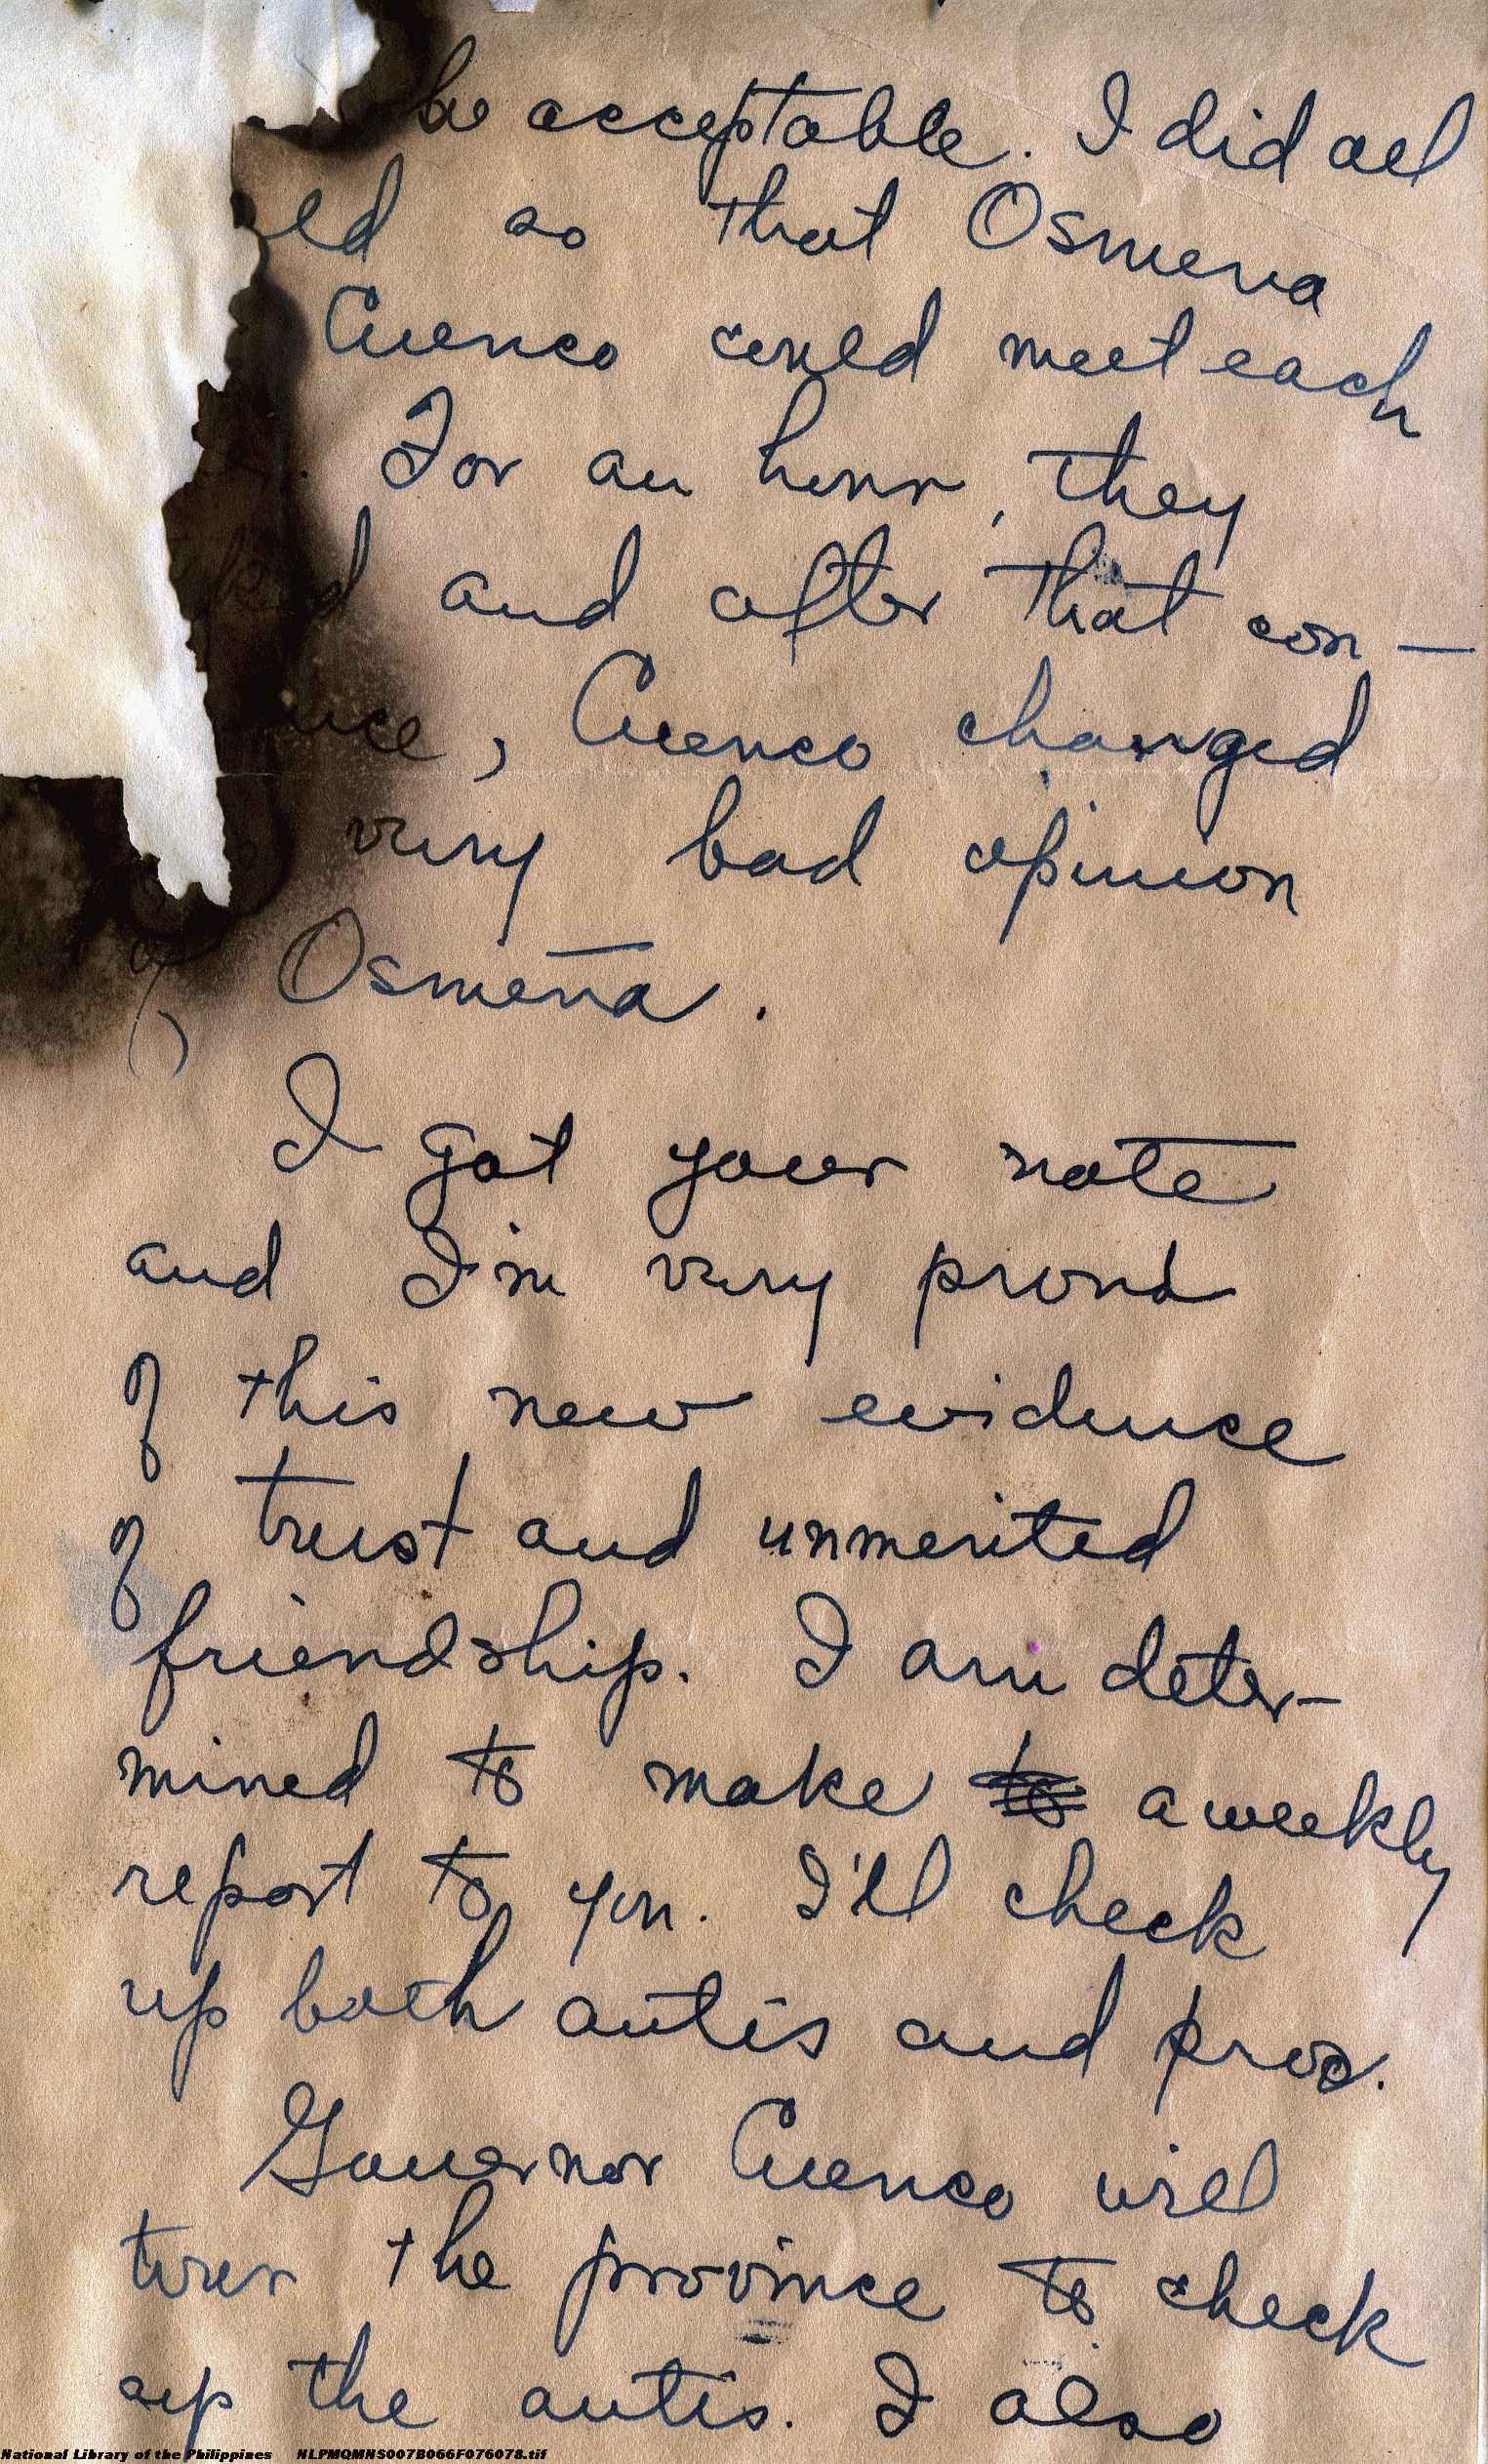 be acceptable. I did all
ld so that Osmena
Cuenco could meet each
For an hour, they
ked and after that con-
nce, Cuenco changed
very bad opinion
of Osmeña.
I got your note
and I'm very proud
of this new evidence
of trust and unmerited
friendship. I am deter-
mined to make a weekly
report to you. I'll check
up both antis and pros.
Governor Cuenco will
tour the province to check
up the antis. I also
National Library of the Philippines NLPMQMNS007B066F076078.tif